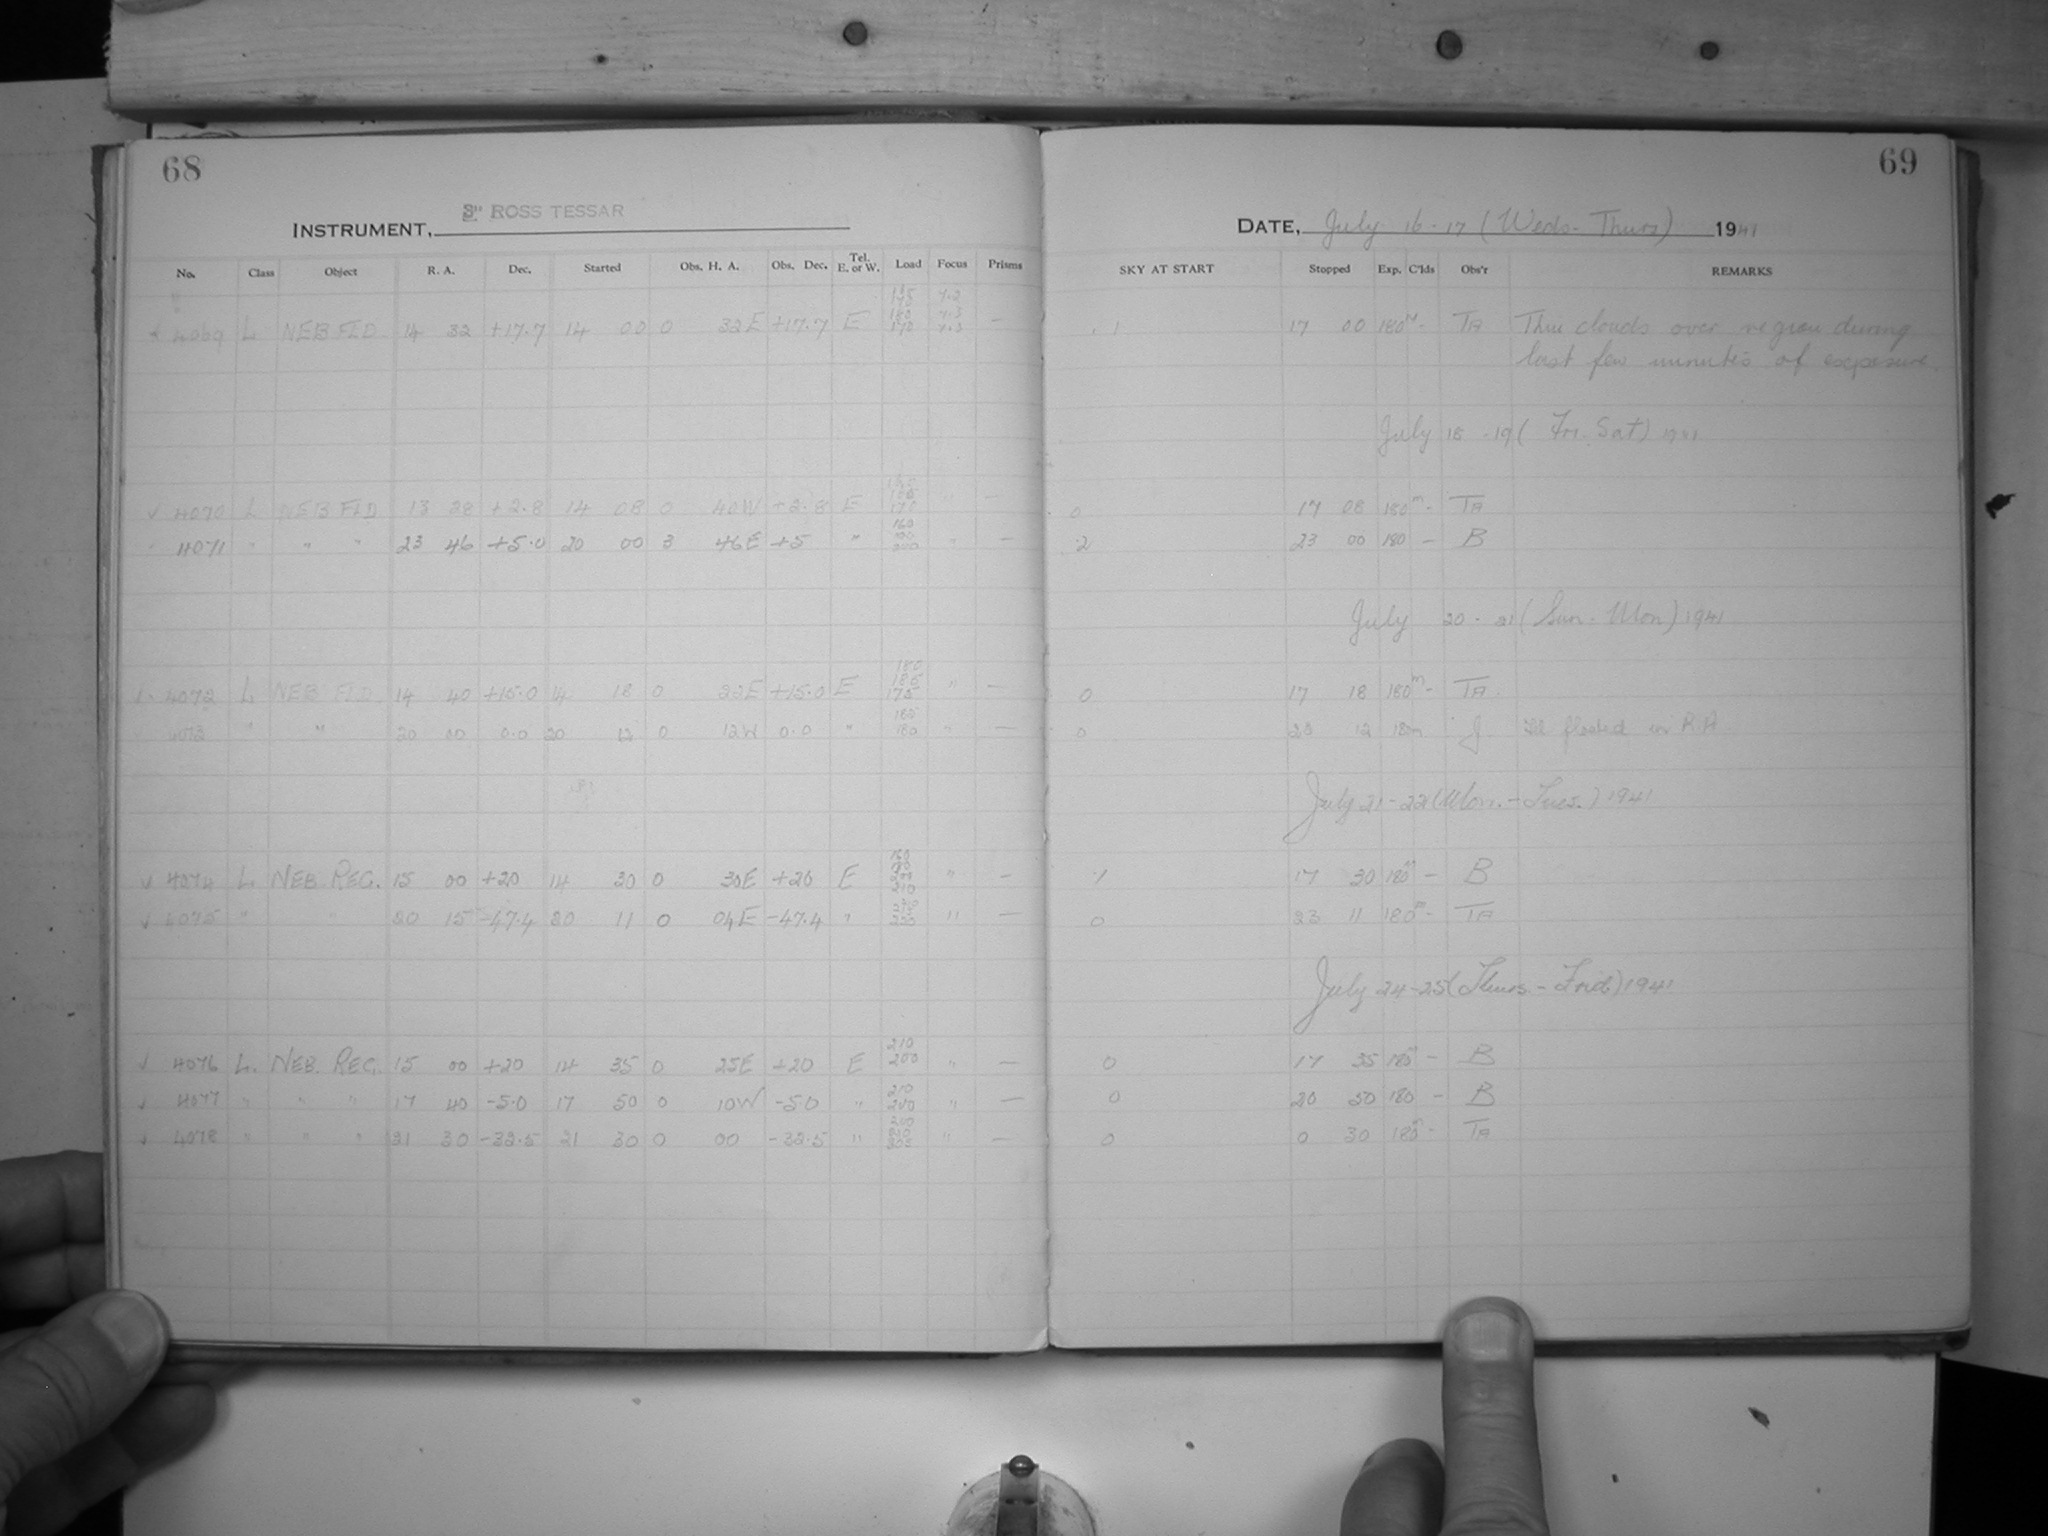 68
INSTRUMENT, 3" ROSS TESSAR
No. Class Object R. A. Dec. Started Obs. H. A. Obs. Dec. Tel. E. or W. Load Focus Prisms
4069 L NEB FLD. 14 32 +17.7 14 00 0 32E +17.7 E 180 170 —
4070 L NEB FLD 13 28 +2.8 14 08 0 40W +2.8 E 170 " —
4071 " " " 23 46 +5.0 20 00 3 46E +5 " 160 " —
4072 L NEB FLD. 14 40 +15.0 14 18 0 22E +15.0 E 180 185 175 " —
4073 " " 20 00 0.0 20 12 0 12W 0.0 " 185 180 " —
4074 L NEB REG. 15 00 +20 14 30 0 30E +20 E 160 210 " —
4075 " " 20 15 -47.4 20 11 0 04E -47.4 " " —
4076 L. NEB. REG. 15 00 +20 14 35 0 25E +20 E 210 200 " —
4077 " " " 17 40 -5.0 17 50 0 10W -5.0 " 210 200 " —
4078 " " " 21 30 -32.5 21 30 0 00 -32.5 " " —
69
DATE, July 16-17 (Weds-Thurs) 1941
SKY AT START Stopped Exp. C'lds Obs'r REMARKS
1 17 00 180m - TA Thin clouds over region during
last few minutes of exposure.
July 18-19 (Fri. Sat) 1941
0 17 08 180m - TA
2 23 00 180 — B
July 20-21 (Sun-Mon) 1941
0 17 18 180m - TA
0 20 12 J floated in R.A
July 21-22 (Mon.-Tues.) 1941
1 17 30 180m — B
0 23 11 180m - TA
July 24-25 (Thurs.-Frid) 1941
0 17 35 180m — B
0 20 50 180 — B
0 0 30 180m - TA